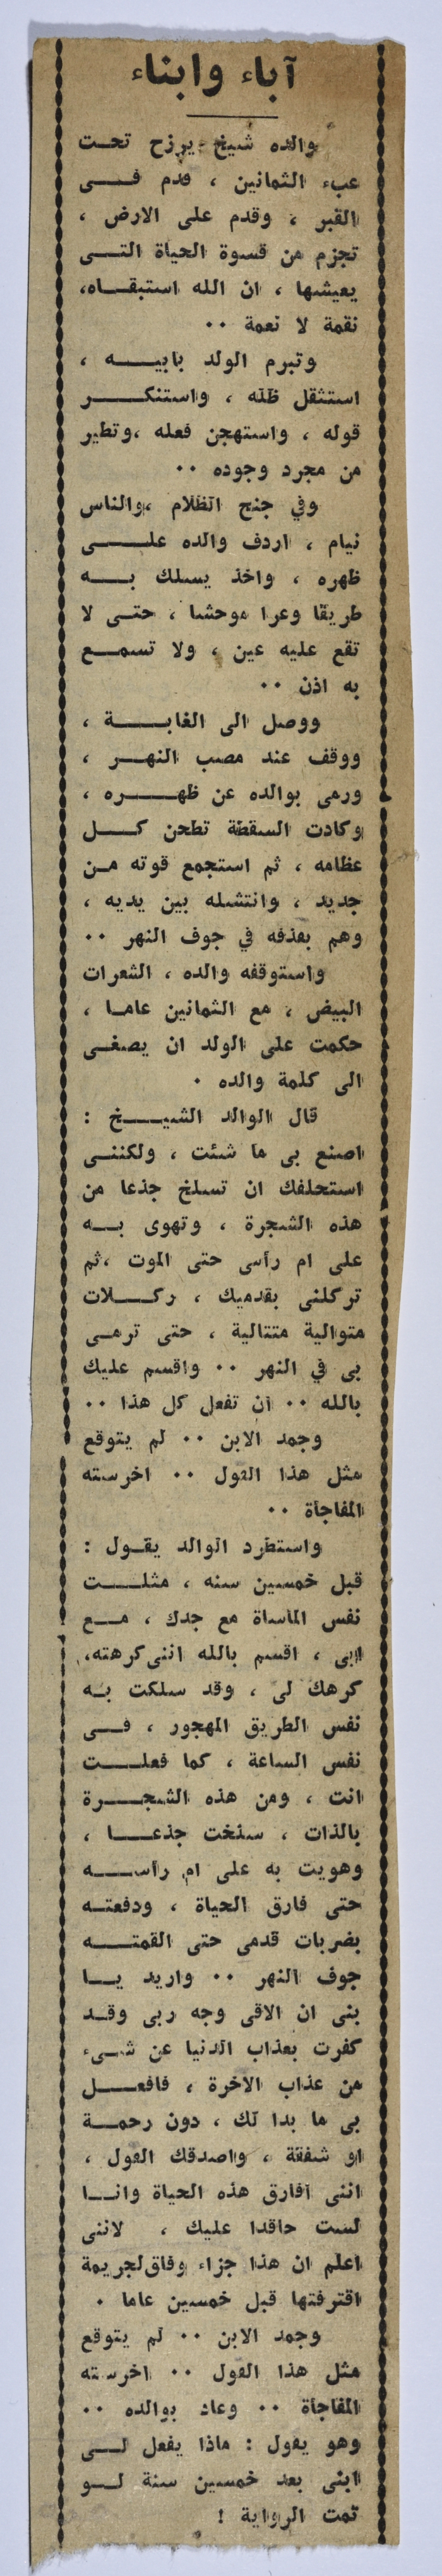 آباء وابناء
والده شيخ يرزح تحت
عبء الثمانين ، قدم فى
القبر ، وقدم على الارض ،
تجزم من قسوة الحياة التى
يعيشها ، ان الله استبقاه،
نقمة لا نعمة ..
وتبرم الولد بابيه ،
استثقل ظله ، واستنكر
قوله ، واستهجن فعله ،وتطير
من مجرد وجوده ..
وفي جنح الظلام ،والناس
نيام ، اردف والده على
ظهره ، واخذ يسلك به
طريقا وعرا موحشا ، حتى لا
تقع عليه عين ، ولا تسمع
به اذن ..
ووصل الى الغابة ،
ووقف عند مصب النهر ،
ورمى بوالده عن ظهره ،
وكادت السقطة تطحن كل
عظامه ، ثم استجمع قوته من
جديد ، وانتشله بين يديه ،
وهم بقذفه في جوف النهر ..
واستوقفه والده ، الشعرات
البيض ، مع الثمانين عاما ،
حكمت على الولد ان يصغى
الى كلمة والده .
قال الوالد الشيخ :
اصنع بى ما شئت ، ولكننى
استحلفك ان تسلخ جذعا من
هذه الشجرة ، وتهوى به
على ام رأسى حتى الموت ،ثم
تركلنى بقدميك ، ركلات
متوالية متتالية ، حتى ترمى
بى في النهر .. واقسم عليك
بالله .. ان تفعل كل هذا ..
وجمد الابن .. لم يتوقع
مثل هذا القول .. اخرسته
المفاجأة ..
واستطرد الوالد يقول :
قبل خمسين سنه ، مثلت
نفس المأساة مع جدك ، مع
ابى ، اقسم بالله اننى كرهته،
كرهك لى ، وقد سلكت به
نفس الطريق المهجور ، فى
نفس الساعة ، كما فعلت
انت ، ومن هذه الشجرة
بالذات ، سلخت جذعا ،
وهويت به على ام رأسه
حتى فارق الحياة ، ودفعته
بضربات قدمى حتى القمته
جوف النهر .. واريد يا
بنى ان الاقى وجه ربى وقد
كفرت بعذاب الدنيا عن شىء
من عذاب الاخرة ، فافعل
بى ما بدا لك ، دون رحمة
او شفقة ، واصدقك القول ،
اننى افارق هذه الحياة وانا
لست حاقدا عليك ، لاننى
اعلم ان هذا جزاء وفاق لجريمة
اقترفتها قبل خمسين عاما .
وجمد الابن .. لم يتوقع
مثل هذا القول .. اخرسته
المفاجأة .. وعاد بوالده ..
وهو يقول : ماذا يفعل لى
ابنى بعد خمسين سنة لو
تمت الرواية !